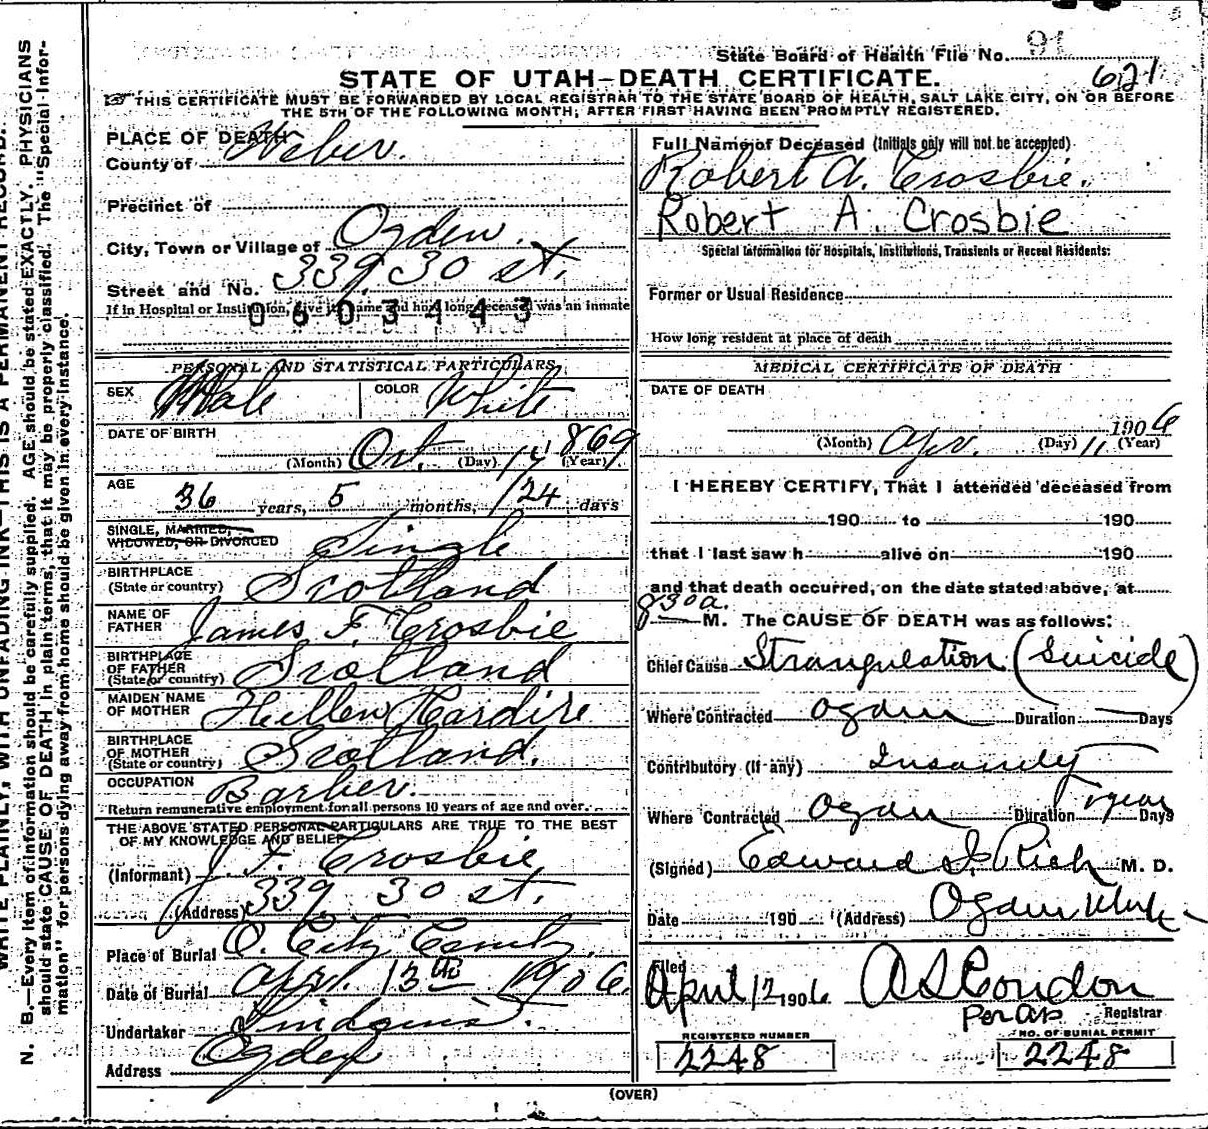 State Board of Health File No. 91
621
STATE OF UTAH—DEATH CERTIFICATE.
THIS CERTIFICATE MUST BE FORWARDED BY LOCAL REGISTRAR TO THE STATE BOARD OF HEALTH, SALT LAKE CITY, ON OR BEFORE
THE 5TH OF THE FOLLOWING MONTH, AFTER FIRST HAVING BEEN PROMPTLY REGISTERED.
N. B.—Every item of information should be carefully supplied. AGE should be stated EXACTLY. PHYSICIANS
should state CAUSE OF DEATH in plain terms, that it may be properly classified. The "Special Infor-
mation" for persons dying away from home should be given in every instance.
WRITE PLAINLY, WITH UNFADING INK—THIS IS A PERMANENT RECORD.
PLACE OF DEATH
County of Weber.
Precinct of
City, Town or Village of Ogden.
Street and No. 339. 30 st.
If in Hospital or Institution, give its name and how long deceased was an inmate
0603443
PERSONAL AND STATISTICAL PARTICULARS
SEX Male COLOR White
DATE OF BIRTH
(Month) Oct. (Day) 14 (Year) 869
AGE
36 years, 5 months, 24 days
SINGLE, MARRIED,
WIDOWED, OR DIVORCED Single
BIRTHPLACE
(State or country) Scotland
NAME OF
FATHER James F. Crosbie
BIRTHPLACE
OF FATHER
(State or country) Scotland
MAIDEN NAME
OF MOTHER Hellen
BIRTHPLACE
OF MOTHER
(State or country) Scotland.
OCCUPATION Barber.
Return remunerative employment for all persons 10 years of age and over.
THE ABOVE STATED PERSONAL PARTICULARS ARE TRUE TO THE BEST
OF MY KNOWLEDGE AND BELIEF
(Informant) J. F. Crosbie
(Address) 339 30 st.
Place of Burial O. City
Date of Burial Apr. 13th 1906.
Undertaker
Address Ogden
Full Name of Deceased (Initials only will not be accepted)
Robert A. Crosbie.
Robert A. Crosbie
Special Information for Hospitals, Institutions, Transients or Recent Residents:
Former or Usual Residence
How long resident at place of death
MEDICAL CERTIFICATE OF DEATH
DATE OF DEATH
(Month) Apr. (Day) 11 1906 (Year)
I HEREBY CERTIFY, That I attended deceased from
190 to 190
that I last saw h alive on 190
and that death occurred, on the date stated above, at
830 a. M. The CAUSE OF DEATH was as follows:
Chief Cause Strangulation (Suicide)
Where Contracted Ogden Duration Days
Contributory (if any) Insanity
Where Contracted Ogden Duration 1 year Days
(Signed) Edward I. Rich M. D.
Date 190 (Address) Ogden Utah
Filed
April 12 1906 A S Condon
Per Registrar
REGISTERED NUMBER
2248
NO. OF BURIAL PERMIT
2248
(OVER)